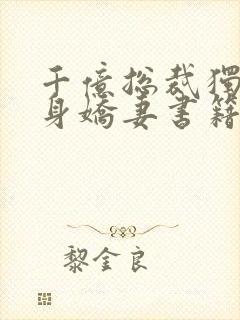 千億総裁獨
身嬌妻書籍
黎金良